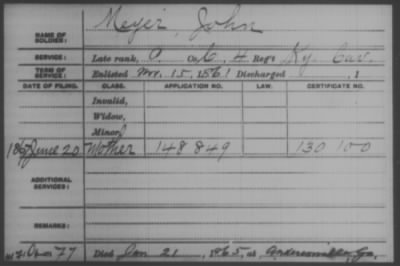 Meyer, John
NAME OF
SOLDIER:
SERVICE: Late rank, P. Co. C, 4 Reg't Ky. Cav.
TERM OF
SERVICE: Enlisted Nov. 15, 1861 Discharged , 1
DATE OF FILING. CLASS. APPLICATION NO. LAW. CERTIFICATE NO.
Invalid,
Widow,
Minor,
June 20 Mother 148849 130100
ADDITIONAL
SERVICES:
REMARKS:
77 Died Jan 21, 1865, at Andersonville Ga.